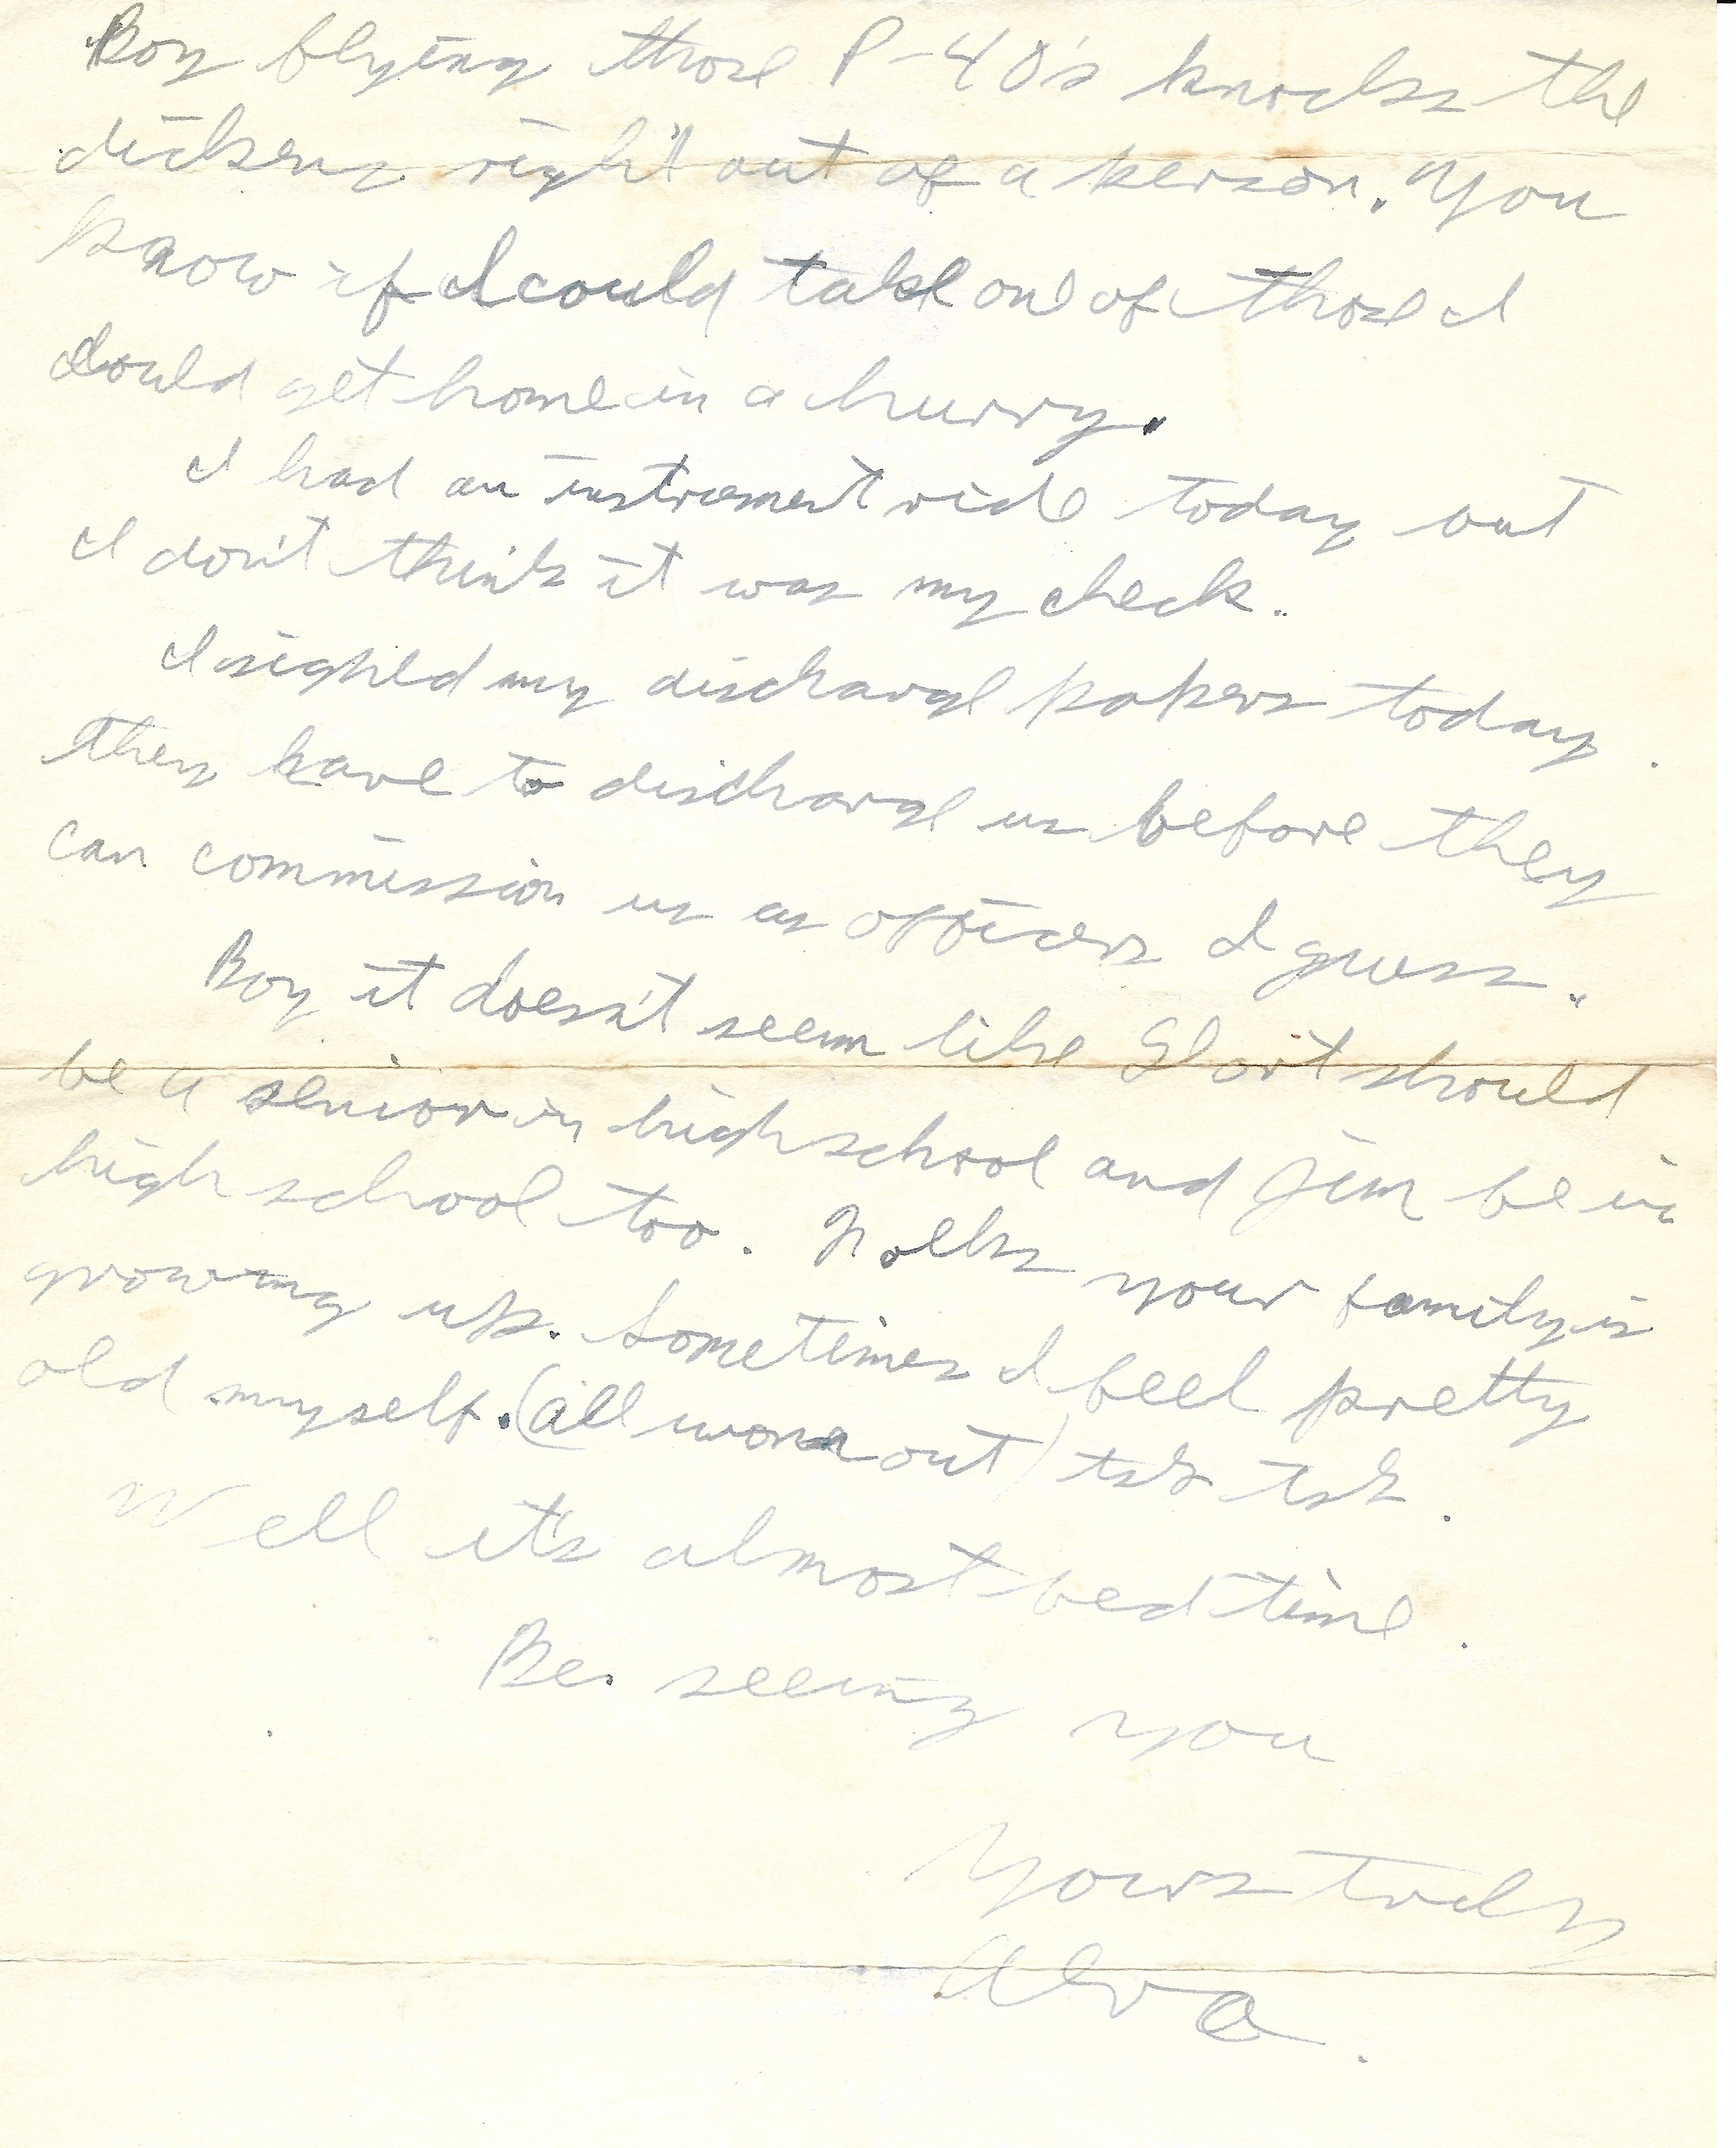 Boy flying those P-40's knocks the
dickens right out of a person. You
know if I could take one of those I
could get home in a hurry.
I had an instrument ride today but
I don't think it was my check.
I signed my discharge papers today.
they have to discharge us before they
can commission us as officers I guess.
Boy it doesn't seem like should
be a senior in high school and Jim be in
high school too. Folks your family is
growing up. Sometimes I feel pretty
old myself. (all worn out) tsk tsk.
Well it's almost bed time.
Be seeing you
Yours truly
Alva.